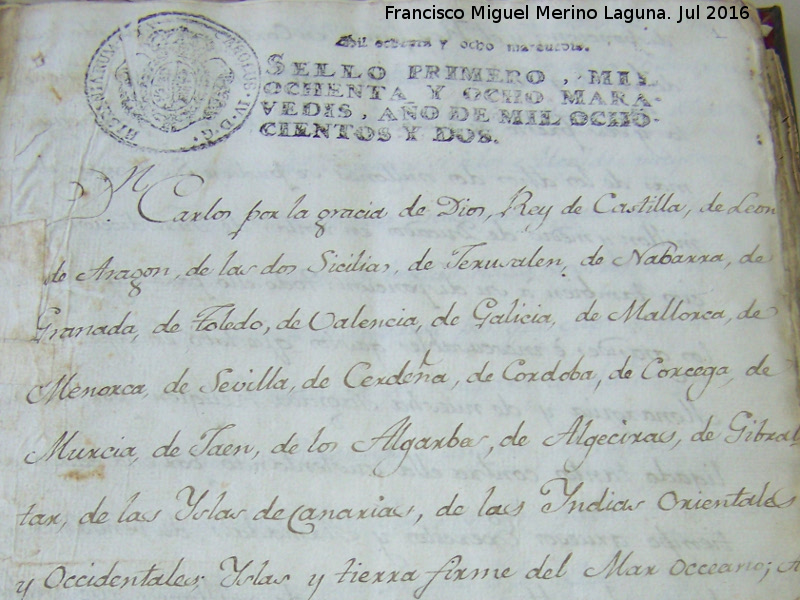 Francisco Miguel Merino Laguna. Jul 2016
Mil ochenta y ocho maravedis.
HISPANIARUM
CAROLUS IV D G
SELLO PRIMERO, MIL
OCHENTA Y OCHO MARA-
VEDIS, AÑO DE MIL OCHO-
CIENTOS Y DOS.
Dn Carlos por la gracia de Dios, Rey de Castilla, de Leon
de Aragon, de las dos Sicilias, de Jerusalen, de Nabarra, de
Granada, de Toledo, de Valencia, de Galicia, de Mallorca, de
Menorca, de Sevilla, de Cerdeña, de Cordoba, de Corcega, de
Murcia, de Jaen, de los Algarbes, de Algeciras, de Gibral
tar, de las Yslas de Canarias, de las Yndias Orientales
y Occidentales, Yslas y tierra firme del Mar Occeano;